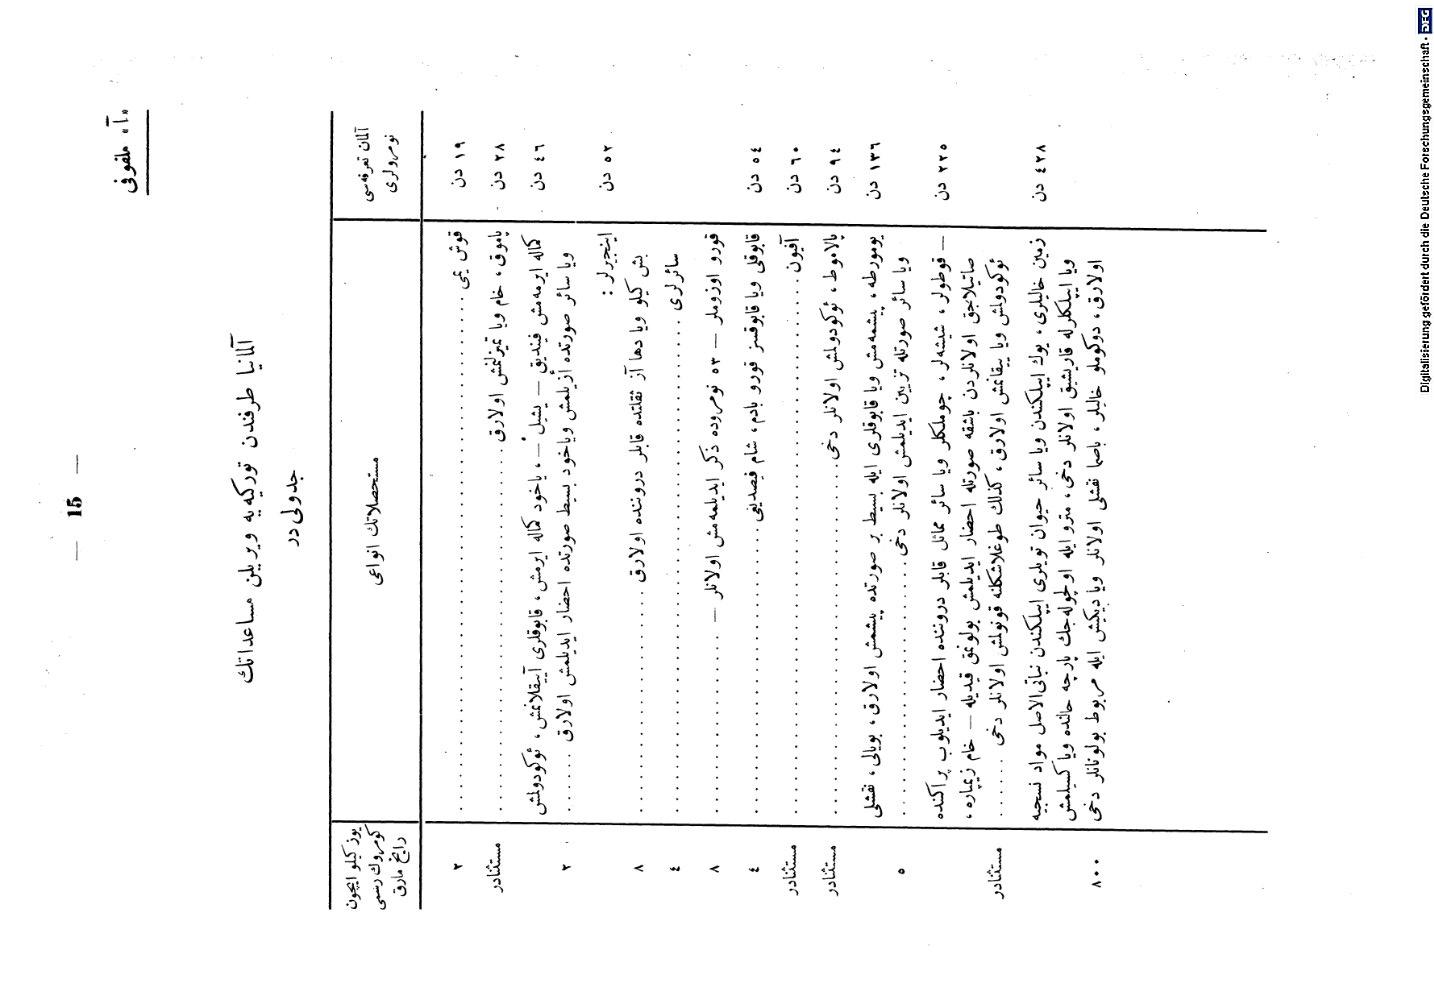 — 15 —
«آ» ملفوفی
آلمانيا طرفندن تورکيه يه ويريلن مساعداتك
جدولی در
آلمان تعرفه‌سی نومرولری
مستحصلاتك انواعی
يوز کيلو ايچون کومروك رسمی رايخ مارق
١٩ دن قوش يمی ٢
٢٨ دن پاموق ، خام ويا تميزلنمش اولارق مستثنادر
٤٦ دن کماله ايرمه‌مش فينديق – يشيل – ، ياخود کماله ايرمش ، قابوقلری آييقلانمش ، ئوکودولمش
ويا سائر صورتده أزيلمش وياخود بسيط صورتده احضار ايديلمش اولارق ٢
٥٢ دن اينجيرلر :
بش کيلو ويا دها آز ثقلتده قابلر دروننده اولارق ٨
سائرلری ٤
قورو اوزوملر – ٥٣ نومروده ذکر ايديلمه‌مش اولانلر – ٨
٥٤ دن قابوقلی ويا قابوقسز قورو بادم ، شام فيصديغی ٤
٦٠ دن آفيون مستثنادر
٩٤ دن پالاموط ، ئوکودولمش اولانلر دخی مستثنادر
١٣٦ دن يومورطه ، پيشمه‌مش ويا قابوقلری ايله بسيط بر صورتده پيشمش اولارق ، بويالی ، نقشلی
ويا سائر صورتله تزيين ايديلمش اولانلر دخی ٥
٢٢٥ دن – قوطولر ، شيشه‌لر ، چوملکلر ويا سائر مماثل قابلر دروننده احضار ايديلوب پراکنده
صاتيلاجق اولانلردن باشقه صورتله احضار ايديلمش بولونمق قيديله – خام زيمپاره ،
ئوکودولمش ويا ييقانمش اولارق ، کذلك طوغلا شکلنه قونولمش اولانلر دخی مستثنادر
٤٢٨ دن زمين خاليلری ، يوك ايپلکندن ويا سائر حيوان تويلری ايپلکندن نباتی‌الاصل مواد نسجيه
ويا ايپلکلرله قاريشيق اولانلر دخی ، مترو ايله اولچوله‌جك پارچه حالنده ويا کسيلمش
اولارق ، دوکوملو خاليلر ، باصما نقشلی اولانلر ويا ديکيش ايله مربوط بولونانلر دخی ٨٠٠
Digitalisierung gefördert durch die Deutsche Forschungsgemeinschaft - DFG